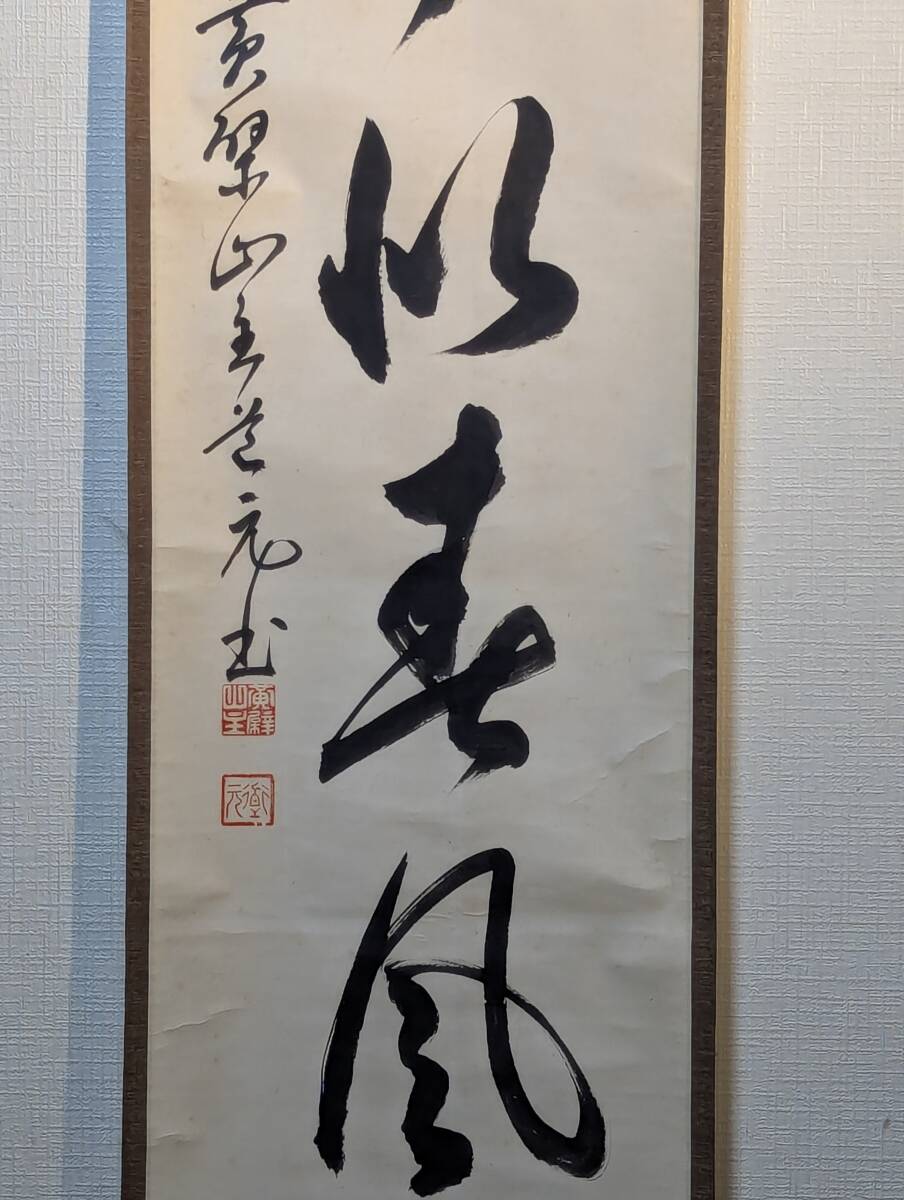 似春風
黄檗山主道元書
黄檗山主
衜元